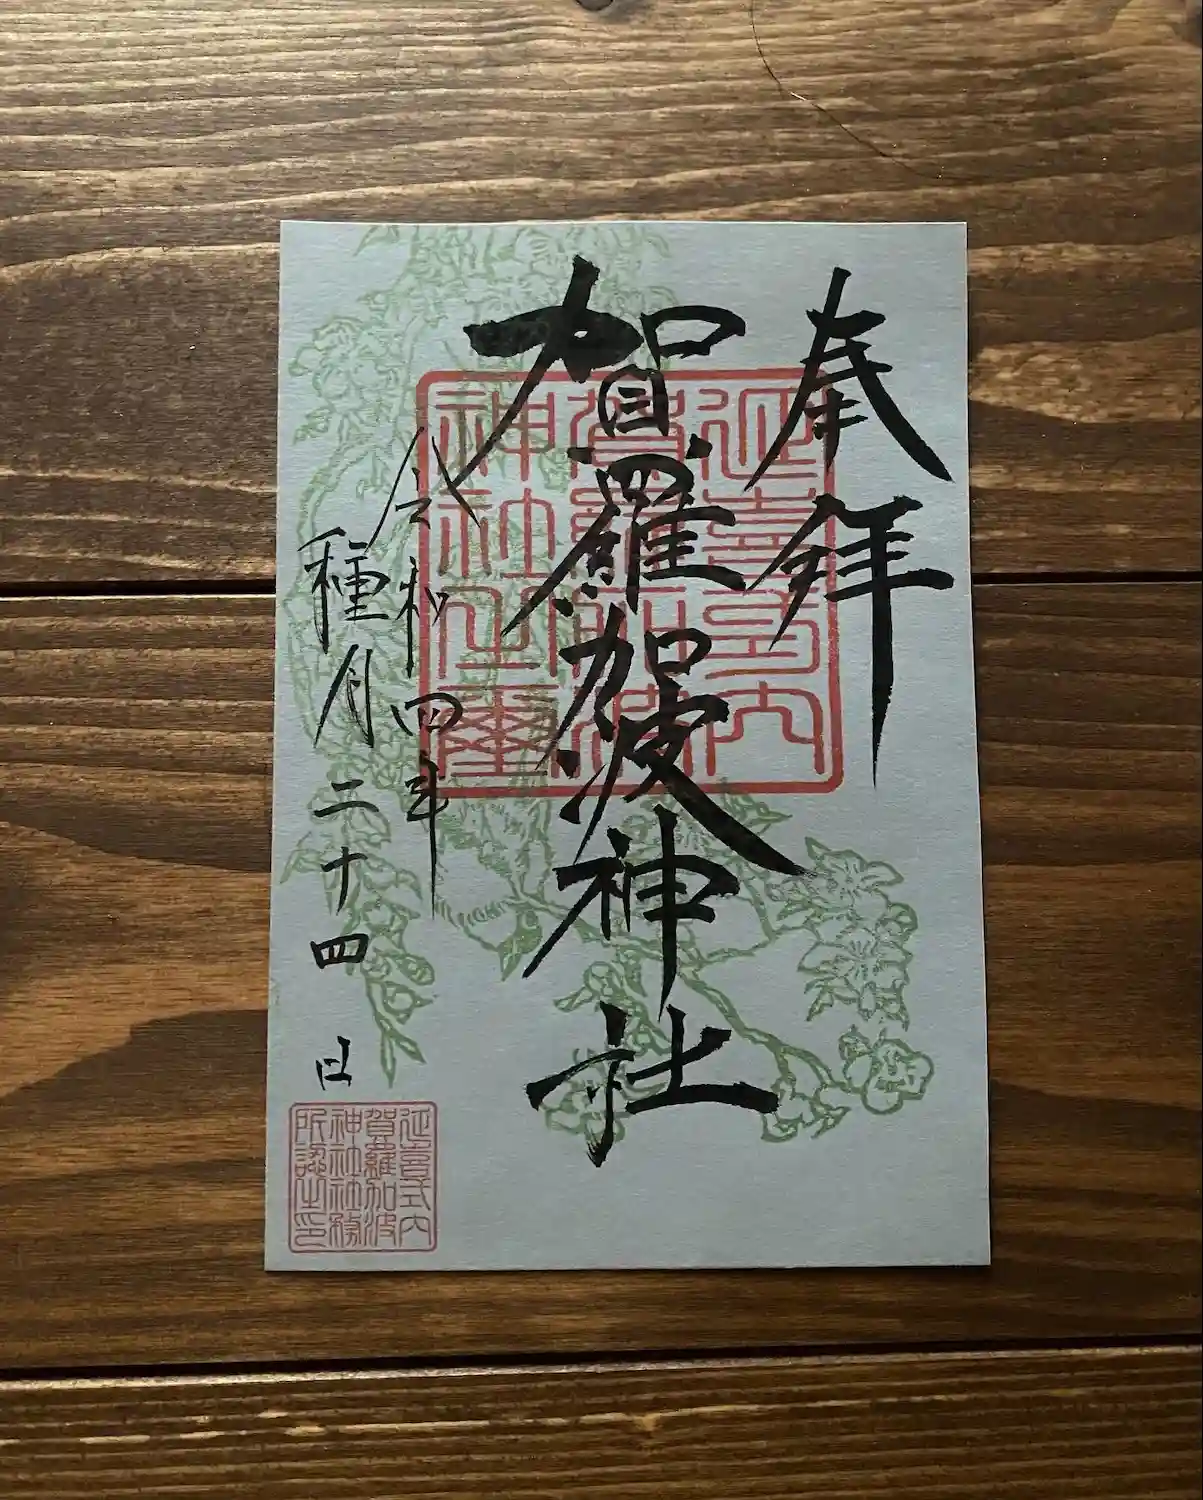 奉拝
賀羅加波神社
令和四年
種月二十四日
延喜式内
賀羅加波
神社之璽
延喜式内
賀羅加波
神社社務
所認之印